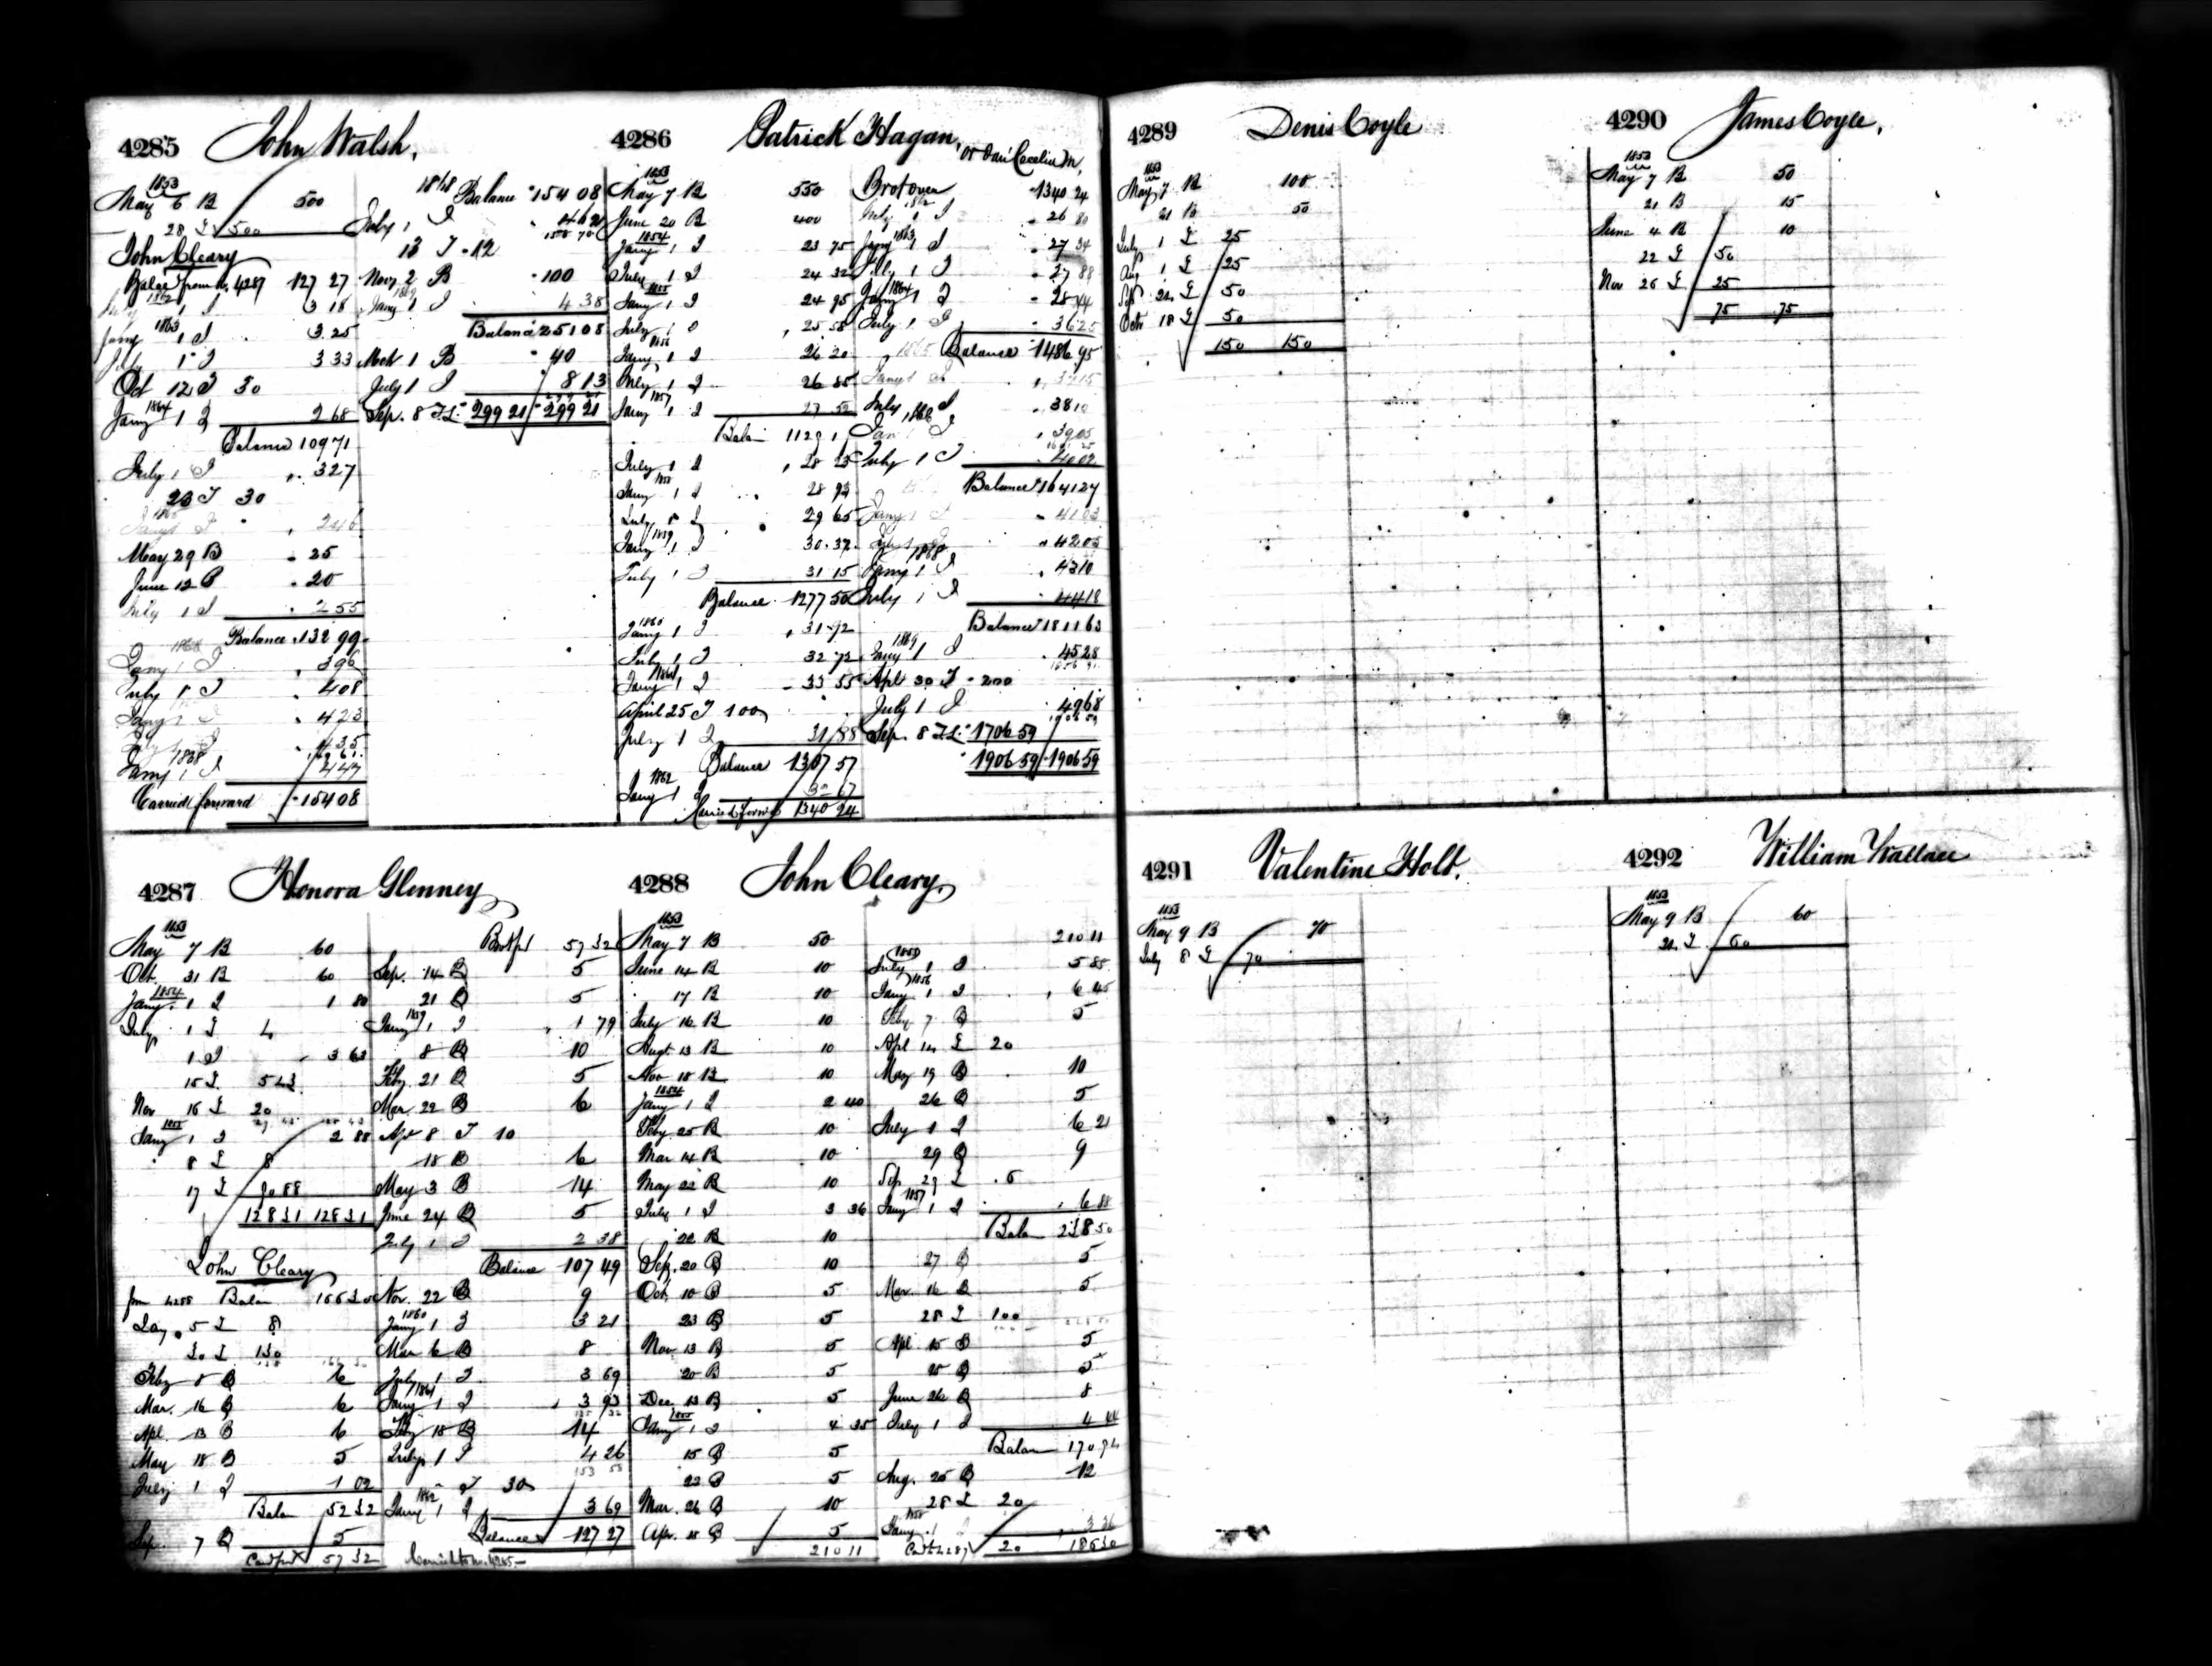 4285 John Walsh,
1853
May 6 B 500
28 I 500
John Cleary
Balae from No. 4287 127 27
1862
July 1 I 3 18
1863
Jany 1 I 3 25
July 1 I 3 33
Oct 12 I 30
1864
Jany 1 I 2 68
Balance 109 71
July 1 I 3 27
23 I 30
Jany 1 I 2 46
May 29 B 25
June 12 B 20
July 1 I 2 55
Balance 132 99
Jany 1 I 3 96
July 1 I 4 08
Jany 1 I 4 23
July 1 I 4 35
1868
Jany 1 I 4 47
Carried forward 154 08
1868 Balance 154 08
July 1 I 4 62
13 I 12
Nov 2 B 100
1869
Jany 1 I 4 38
Balance 251 08
Mch 1 B 40
July 1 I 8 13
Sep. 8 I. 299 21 299 21
4286 Patrick Hagan, or Dau' Cecelia M,
1853
May 7 B 550
June 20 B 400
1854
Jany 1 I 23 75
July 1 I 24 32
1855
Jany 1 I 24 95
July 1 I 25 58
1856
Jany 1 I 26 20
July 1 I 26 85
1857
Jany 1 I 27 52
Balan
July 1 I 28 23
1858
Jany 1 I 28 93
July 1 I 29 65
1859
Jany 1 I 30 37
July 1 I 31 15
Balance 1277 50
1860
Jany 1 I 31 92
July 1 I 32 72
1861
Jany 1 I 33 55
April 25 I 100
July 1 I 31 88
Balance 1307 57
1862
Jany 1 I 32 67
Carried forwd 1340 24
Brot over 1340 24
1862
July 1 I 26 80
1863
Jany 1 I 27 34
July 1 I 27 88
1864
Jany 1 I 28 44
July 1 I 36 25
1865 Balance 1486 95
Jany 1 I 37 15
July 1 I 38 10
1866
Jan 1 I 39 05
July 1 I 40 02
Balance 1641 27
Jany 1 I 41 03
July 1 I 42 05
1868
Jany 1 I 43 10
July 1 I 44 18
Balance 1811 63
1869
Jany 1 I 45 28
Apl 30 I 200
July 1 I 49 68
Sep. 8 I. 1706 59
1906 59 1906 59
4287 Honora Glenney
1853
May 7 B 60
Oct. 31 B 60
1854
Jany 1 I 1 80
July 1 I 4
1 I 3 63
15 I
Nov 16 I 20
1855
Jany 1 I 2 88
8 I 8
17 I
128 31 128 31
John Cleary
from 4288 Balan
Jany 5 I 8
30 I 130
Feby 8 B 6
Mar. 16 B 6
Apl. 13 B 6
May 18 B 5
July 1 I 1 02
Balan 52 32
Sep. 7 B 5
Card ford 57 32
Brot ford 57 32
Sep. 14 B 5
21 B 5
1859
Jany 1 I 1 79
8 B 10
Feby. 21 B 5
Mar. 22 B 6
Apr 8 I 10
18 B 6
May 3 B 14
June 24 B 5
July 1 I 2 38
Balance 107 49
Nov. 22 B 9
1860
Jany 1 I 3 21
Mar 6 B 8
July 1 I 3 69
1861
Jany 1 I 3 93
Feby 18 B 14
July 1 I 4 26
I 30
1862
Jany 1 I 3 69
Balance 127 27
Carried to No. 4285
4288 John Cleary,
1853
May 7 B 50
June 14 B 10
17 B 10
July 16 B 10
Augt. 13 B 10
Nov 18 B 10
1854
Jany 1 I 2 40
Feby 25 B 10
Mar 14 B 10
May 22 B 10
July 1 I 3 36
22 B 10
Sep. 20 B 10
Oct. 10 B 5
23 B 5
Nov 13 B 5
20 B 5
Dec. 13 B 5
1855
Jany 1 I 4 35
15 B 5
22 B 5
Mar. 26 B 10
Apr. 18 B 5
210 11
210 11
1855
July 1 I 5 85
1856
Jany 1 I 6 45
Feby 7 B 5
Apl 14 I 20
May 19 B 10
26 B 5
July 1 I 6 21
29 B 9
Sep 29 I 6
1857
Jany 1 I 6 88
Balan 238 50
27 B 5
Mar. 16 B 5
28 I 100
Apl. 15 B 5
25 B 5
June 26 B 8
July 1 I 4 44
Balan 170 94
Aug. 25 B 12
28 I 20
1858
Jany 1 I 3 36
Card to 4287 20
4289 Denis Coyle
1853
May 7 B 100
21 B 50
July 1 I 25
Aug 1 I 25
Sep 24 I 50
Octr 18 I 50
150 150
4290 James Coyle,
1853
May 7 B 50
21 B 15
June 4 B 10
22 I 50
Nov 26 I 25
75 75
4291 Valentine Holt.
1853
May 9 B 70
July 8 I 70
4292 William Wallace
1853
May 9 B 60
21 I 60